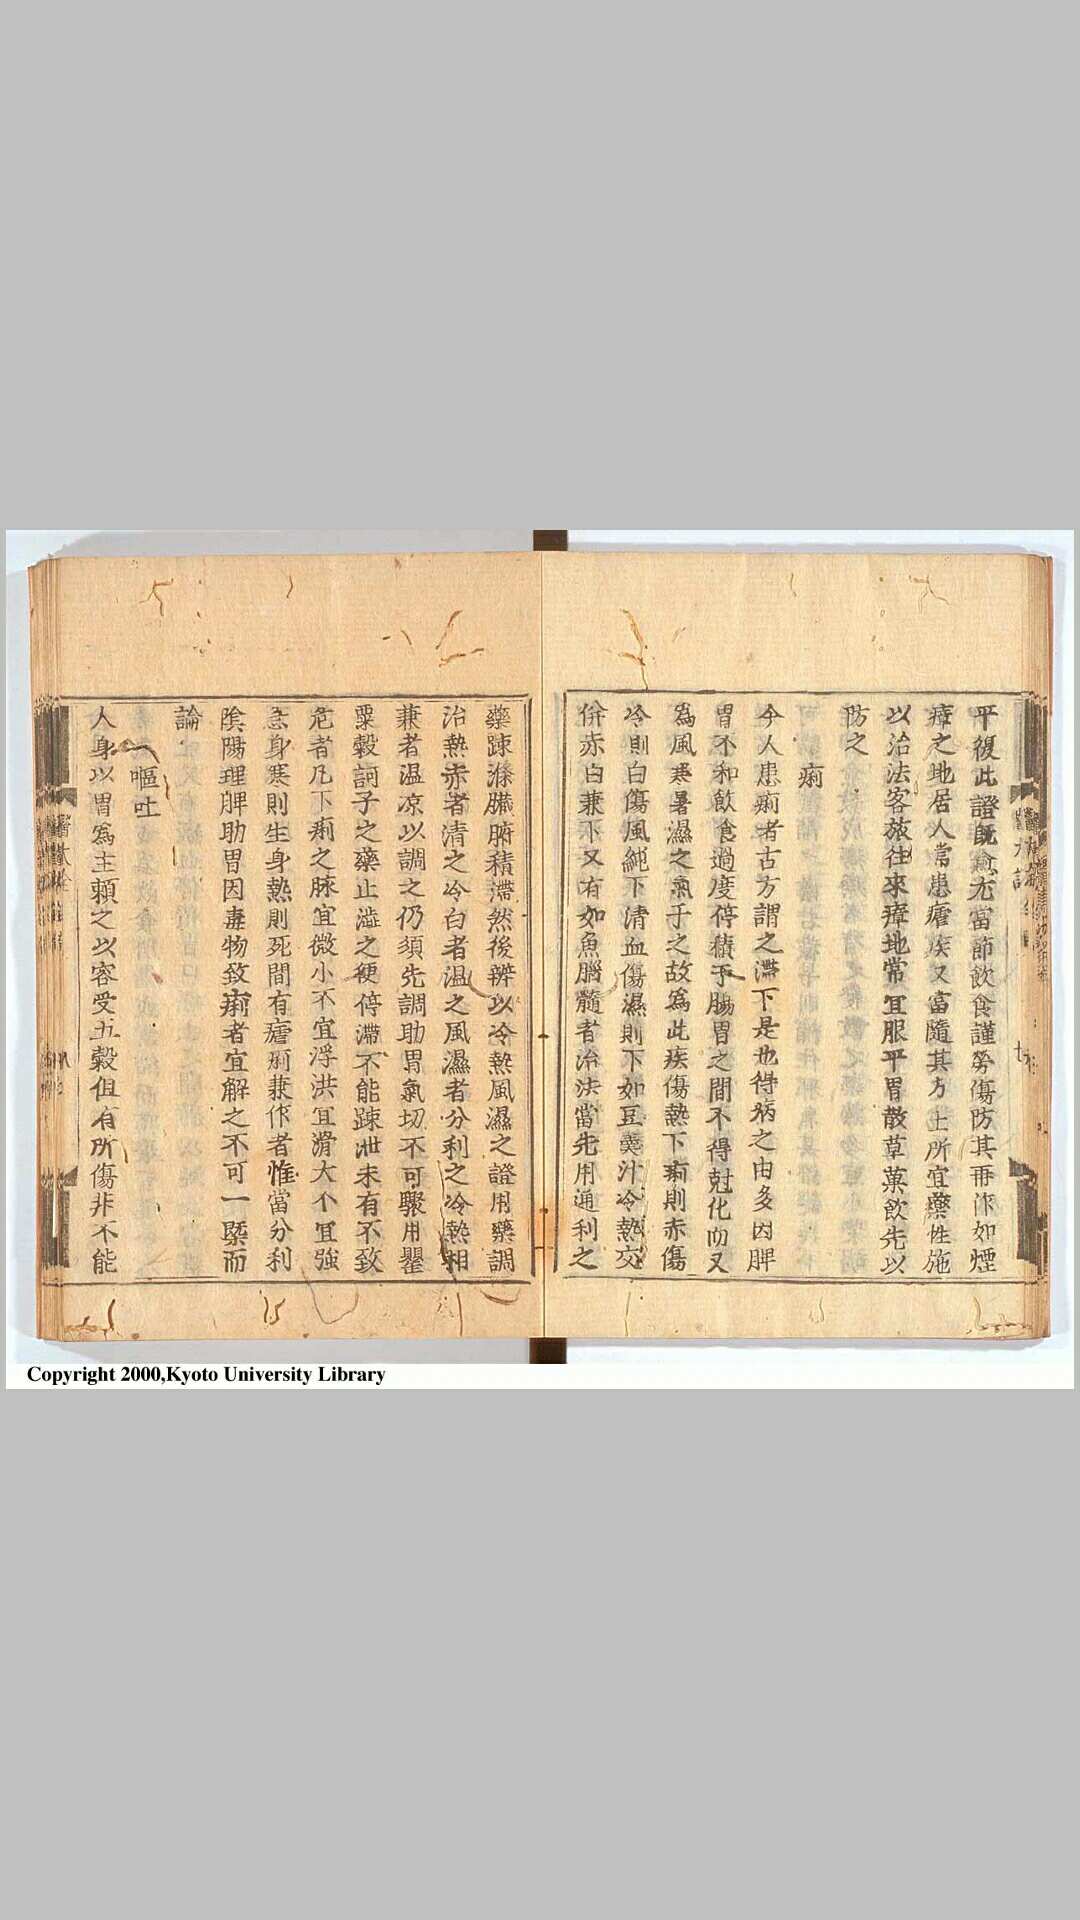 平復此證既愈尤當節飲食謹勞傷防其再作如煙
瘴之地居人常患瘧疾又當隨其方土所宜藥性施
以治法客旅往來瘴地常宜服平胃散草菓飲先以
防之
痢
今人患痢者古方謂之滯下是也得病之由多因脾
胃不和飲食過度停積于腸胃之間不得尅化而又
為風寒暑濕之氣于之故為此疾傷熱下痢則赤傷
冷則白傷風純下清血傷濕則下如豆羹汁冷熱交
併赤白兼下又有如魚腦髓者治法當先用通利之
藥踈滌臟腑積滯然後辨以冷熱風濕之證用藥調
治熱赤者清之冷白者温之風濕者分利之冷熱相
兼者温凉以調之仍須先調助胃氣切不可驟用罌
粟殼訶子之藥止澁之使停滯不能踈泄未有不致
危者凡下痢之脉宜微小不宜浮洪宜滑大不宜強
急身寒則生身熱則死間有瘧痢兼作者惟當分利
隂陽理脾助胃因毒物致痢者宜解之不可一槩而
論
嘔吐
人身以胃為主頼之以容受五穀但有所傷非不能
Copyright 2000,Kyoto University Library